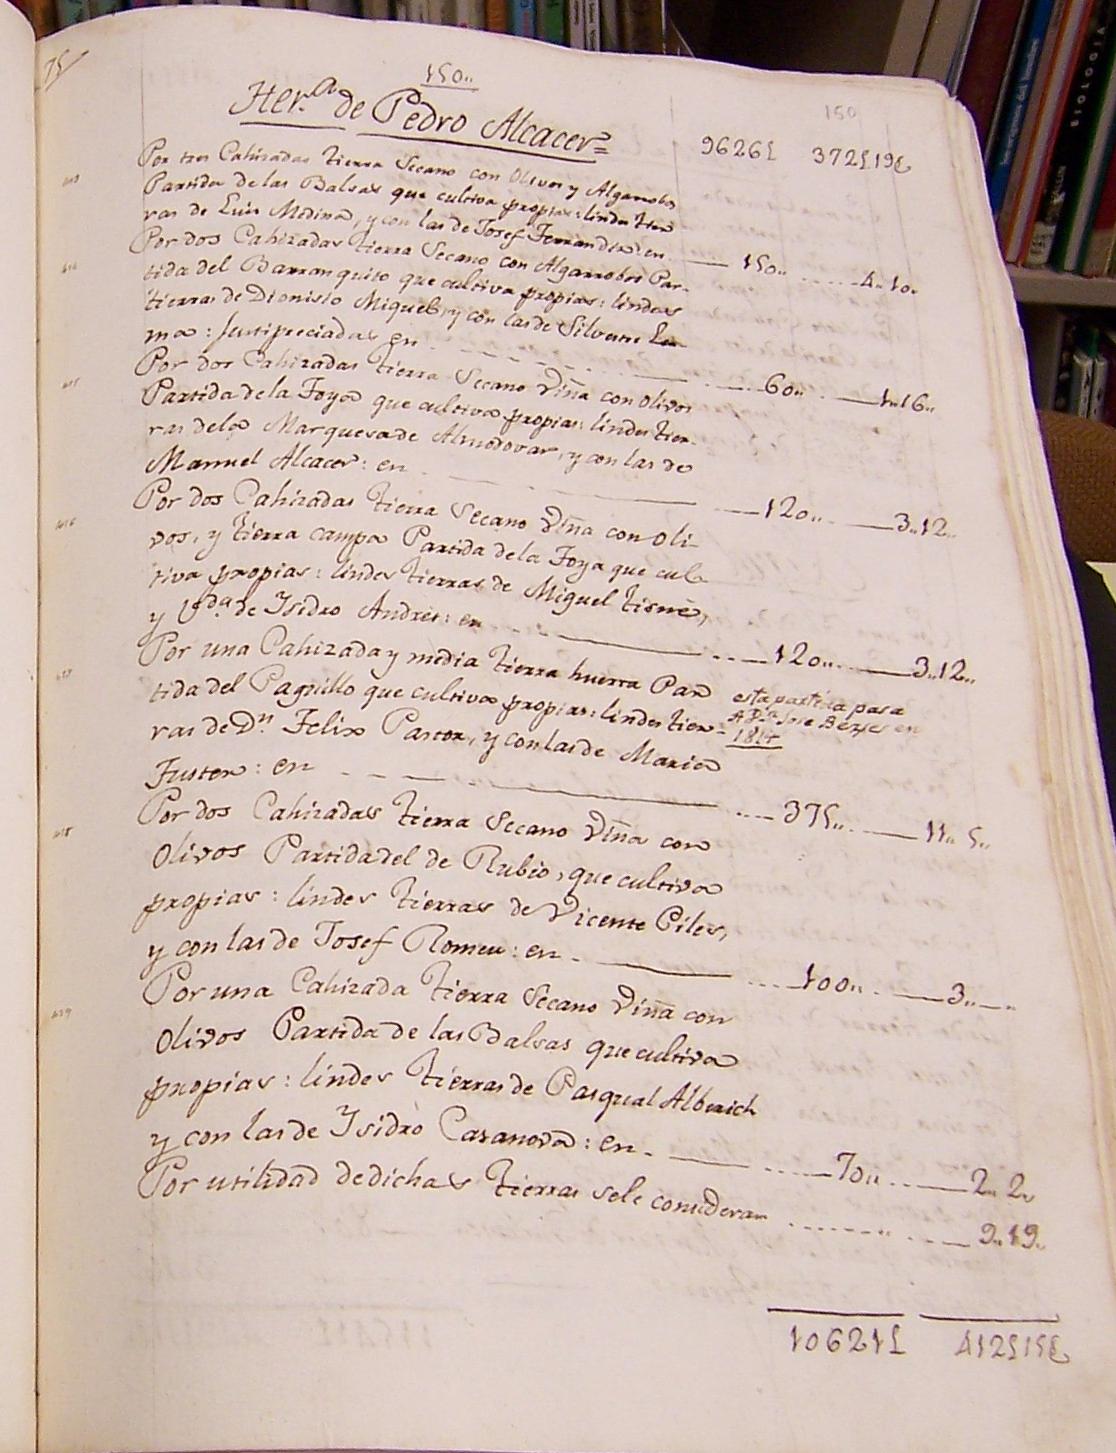 75
150„
150
Her.ª de Pedro Alcacer=
9626£ 372£19ȿ
Por tres Cahizadas tierra Secano con Olivos y Algarrobos
Partida de las Balsas que cultiva propias: lindes tier
ras de Luis Medina, y con las de Josef Ferrandiz: en 150„ 4„10„
Por dos Cahizadas tierra Secano con Algarrobos Par-
tida del Barranquito que cultiva propias: lindes
tierras de Dionisio Miquel, y con las de Silvestre
ma: Justipreciadas en 60„ 1„16„
Por dos Cahizadas tierra Secano Viña con Olivos
Partida de la Foya que cultiva propias: lindes tier-
ras de la Marquesa de Almodovar, y con las de
Manuel Alcacer: en 120„ 3„12„
Por dos Cahizadas tierra Secano Viña con Oli-
vos, y tierra campa Partida de la Foya que cul-
tiva propias: lindes tierras de Miguel Tisne,
y V.da de Isidro Andres: en 120„ 3„12„
Por una Cahizada y media tierra huerta Par
tida del Pagillo que cultiva propias: lindes tier-
ras de Dn. Felix Pastor, y con las de Maria
Fuster: en 375„ 11„5„
esta partida pasa
a Jose en
1814
Por dos Cahizadas tierra Secano Viña con
Olivos Partida del de Rubio, que cultiva
propias: lindes tierras de Vicente Piles,
y con las de Josef Romeu: en 100„ 3„—„
Por una Cahizada tierra Secano Viña con
Olivos Partida de las Balsas que cultiva
propias: lindes tierras de Pasqual Alberich
y con las de Isidro Casanova: en 70„ 2„2„
Por utilidad de dichas tierras sele consideran 9„19„
10621£ 412£15ȿ